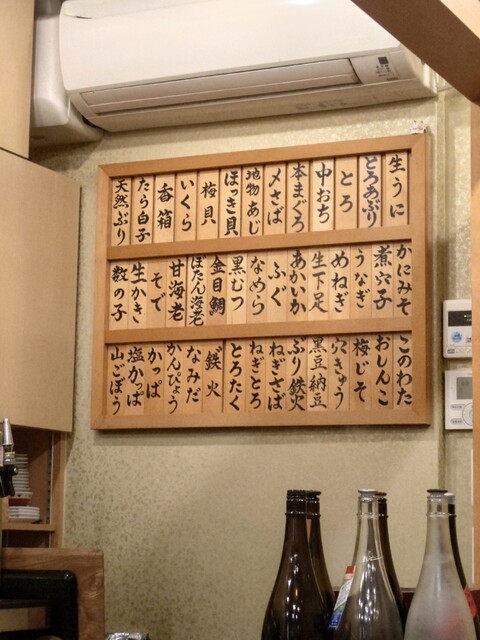 生うに
とろあぶり
とろ
中おち
本まぐろ
〆さば
地物あじ
ほっき貝
梅貝
いくら
香箱
たら白子
天然ぶり
かにみそ
煮穴子
うなぎ
めねぎ
生下足
あかいか
ふぐ
なめら
黒むつ
金目鯛
ぼたん海老
甘海老
そで
生かき
数の子
このわた
おしんこ
梅じそ
穴きゅう
黒豆納豆
ぶり鉄火
ねぎさば
ねぎとろ
とろたく
鉄火
なみだ
かんぴょう
かっぱ
塩かっぱ
山ごぼう